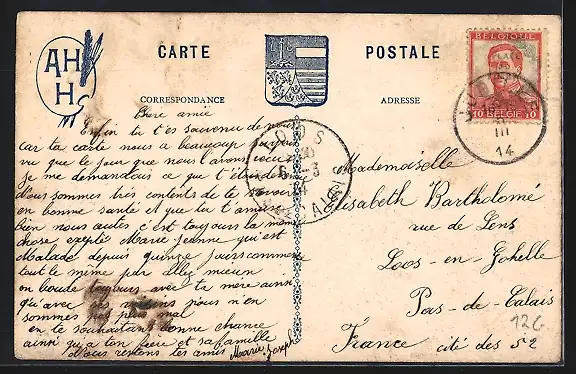 AH
H
CARTE POSTALE
CORRESPONDANCE
ADRESSE
BELGIQUE
10 BELGIË 10
III
14
LOOS
Chère amie
Enfin tu t'es souvenu de nous
car ta carte nous a beaucoup
vu que le jour que nous l'avons
je me demandais ce que
Nous sommes très contents de te savoir
en bonne santé et que tu
bien nous autes c'est toujours la même
chose exepté Marie Jeanne qui est
Malade depuis quinze jours
tout le même
en boude toujours avec te mere
qu'avec les voisins nous n'en
sommes pas plus mal
en te souhaitant bonne chance
ainsi qu'a ton et sa famille
Nous restons tes amis Marie Joseph
Mademoiselle
Elisabeth Bartholomé
rue de Lens
Loos-en-Gohelle
Pas-de-Calais
126
France cité des 52